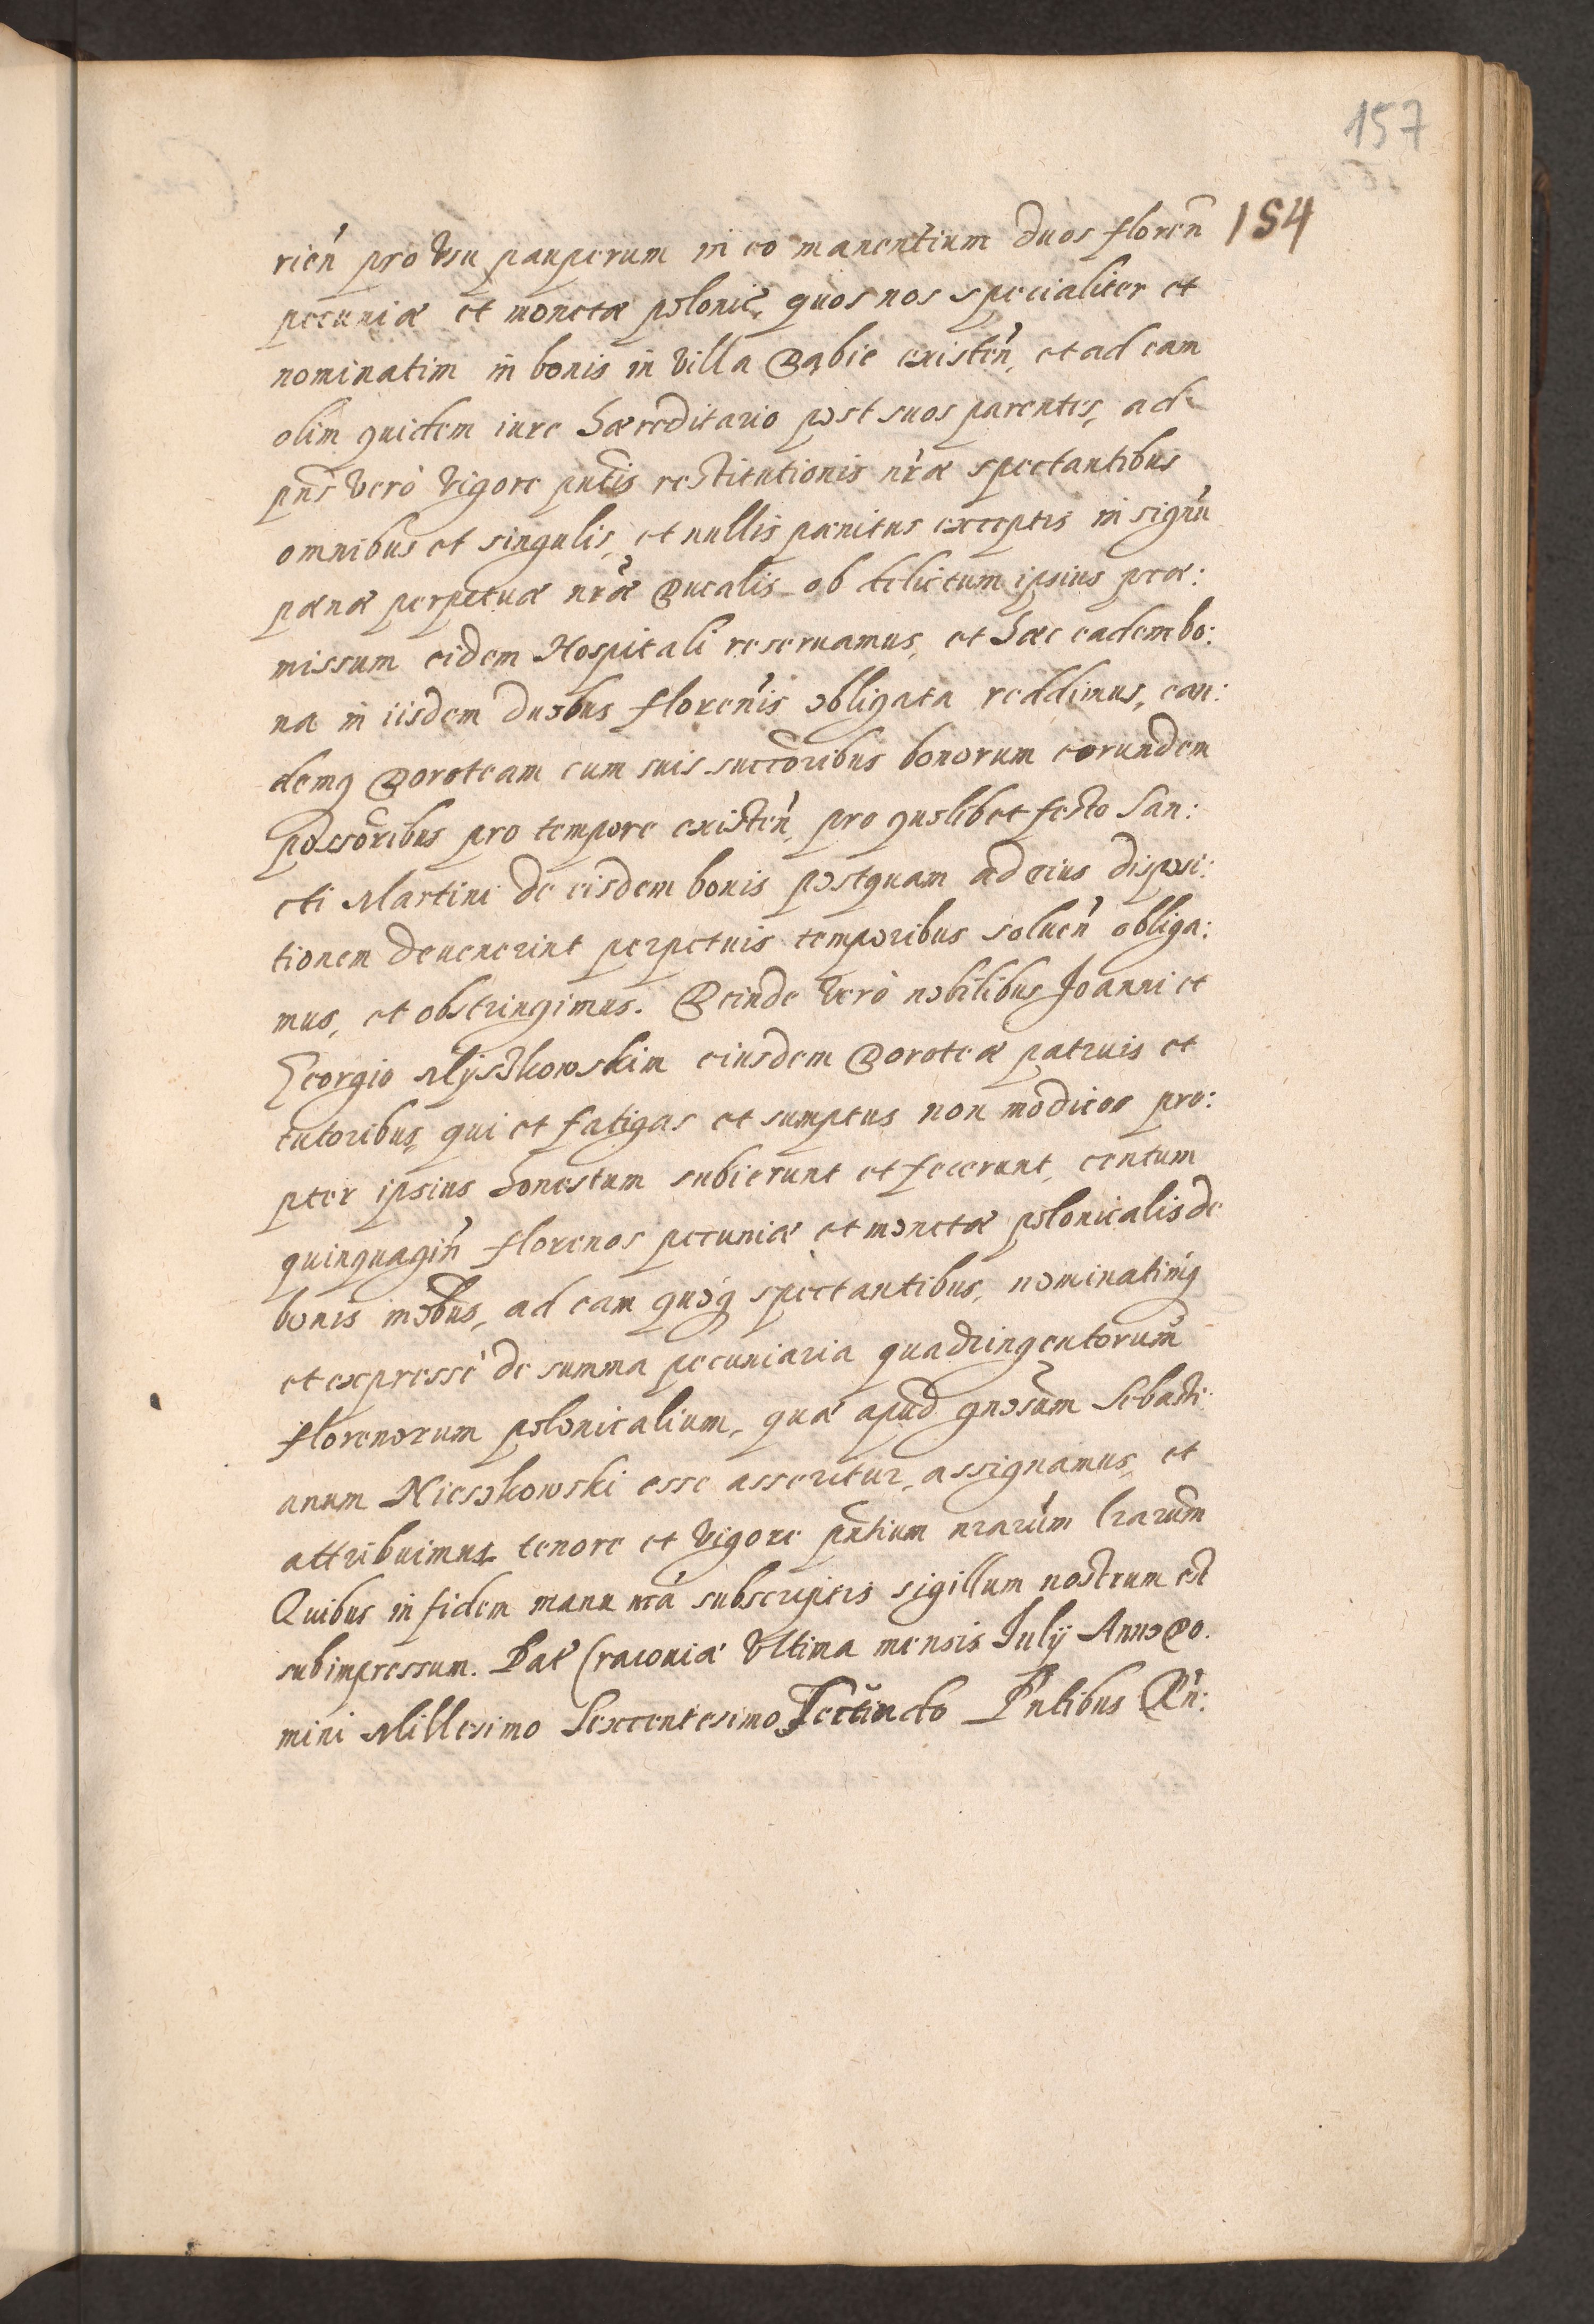 157
154
rień pro Vsu pauperum in eo manentium duos floreñ
pecuniæ et monetæ polonic̃, quos nos specialiter et
nominatim in bonis in Villa Dąbie existeń, et ad eam
olim quidem iure hæreditario post suos parentes, ad
pñs Verò Vigore pñtis restitutionis ñræ spectantibus
omnibus et singulis, et nullis pænitus exceptis in signũ
pænæ perpetuæ ñræ Ducalis ob delictum ipsius præ:
missum eidem Hospitali reseruamus, et hæc eadem bo:
na in iisdem duobus florenis obligata reddimus, ean:
demq Doroteam cum suis succõribus bonorum eorundem
possõribus pro tempore existeń, pro quolibet festo San:
cti Martini de eisdem bonis postquam ad eius disposi:
tionem deuenerint perpetuis temporibus solueń obliga:
mus, et obstringimus. Deinde Verò nobilibus Joanni et
Georgio Myszkowskim eiusdem Doroteæ patruis et
tutoribus, qui et fatigas et sumptus non modicos pro:
pter ipsius honestum subierunt et fecerunt, centum
quinquagiń florenos pecuniæ et monetæ polonicalis de
bonis mõbus, ad eam quoq spectantibus, nominatimq
et expressè de summa pecuniaria quadringentorum
florenorum polonicalium, quæ apud gnõsum Sebasti:
anum Nieszkowski esse asseritur, assignamus, et
attribuimus tenore et Vigore pñtium ñrarum lrarum
Quibus in fidem manu ñra subscriptis sigillum nostrum est
subimpressum. Dat Cracouiæ Vltima mensis Julij Anno Do:
mini Millesimo Sexcentesimo Pñtibus Rń: